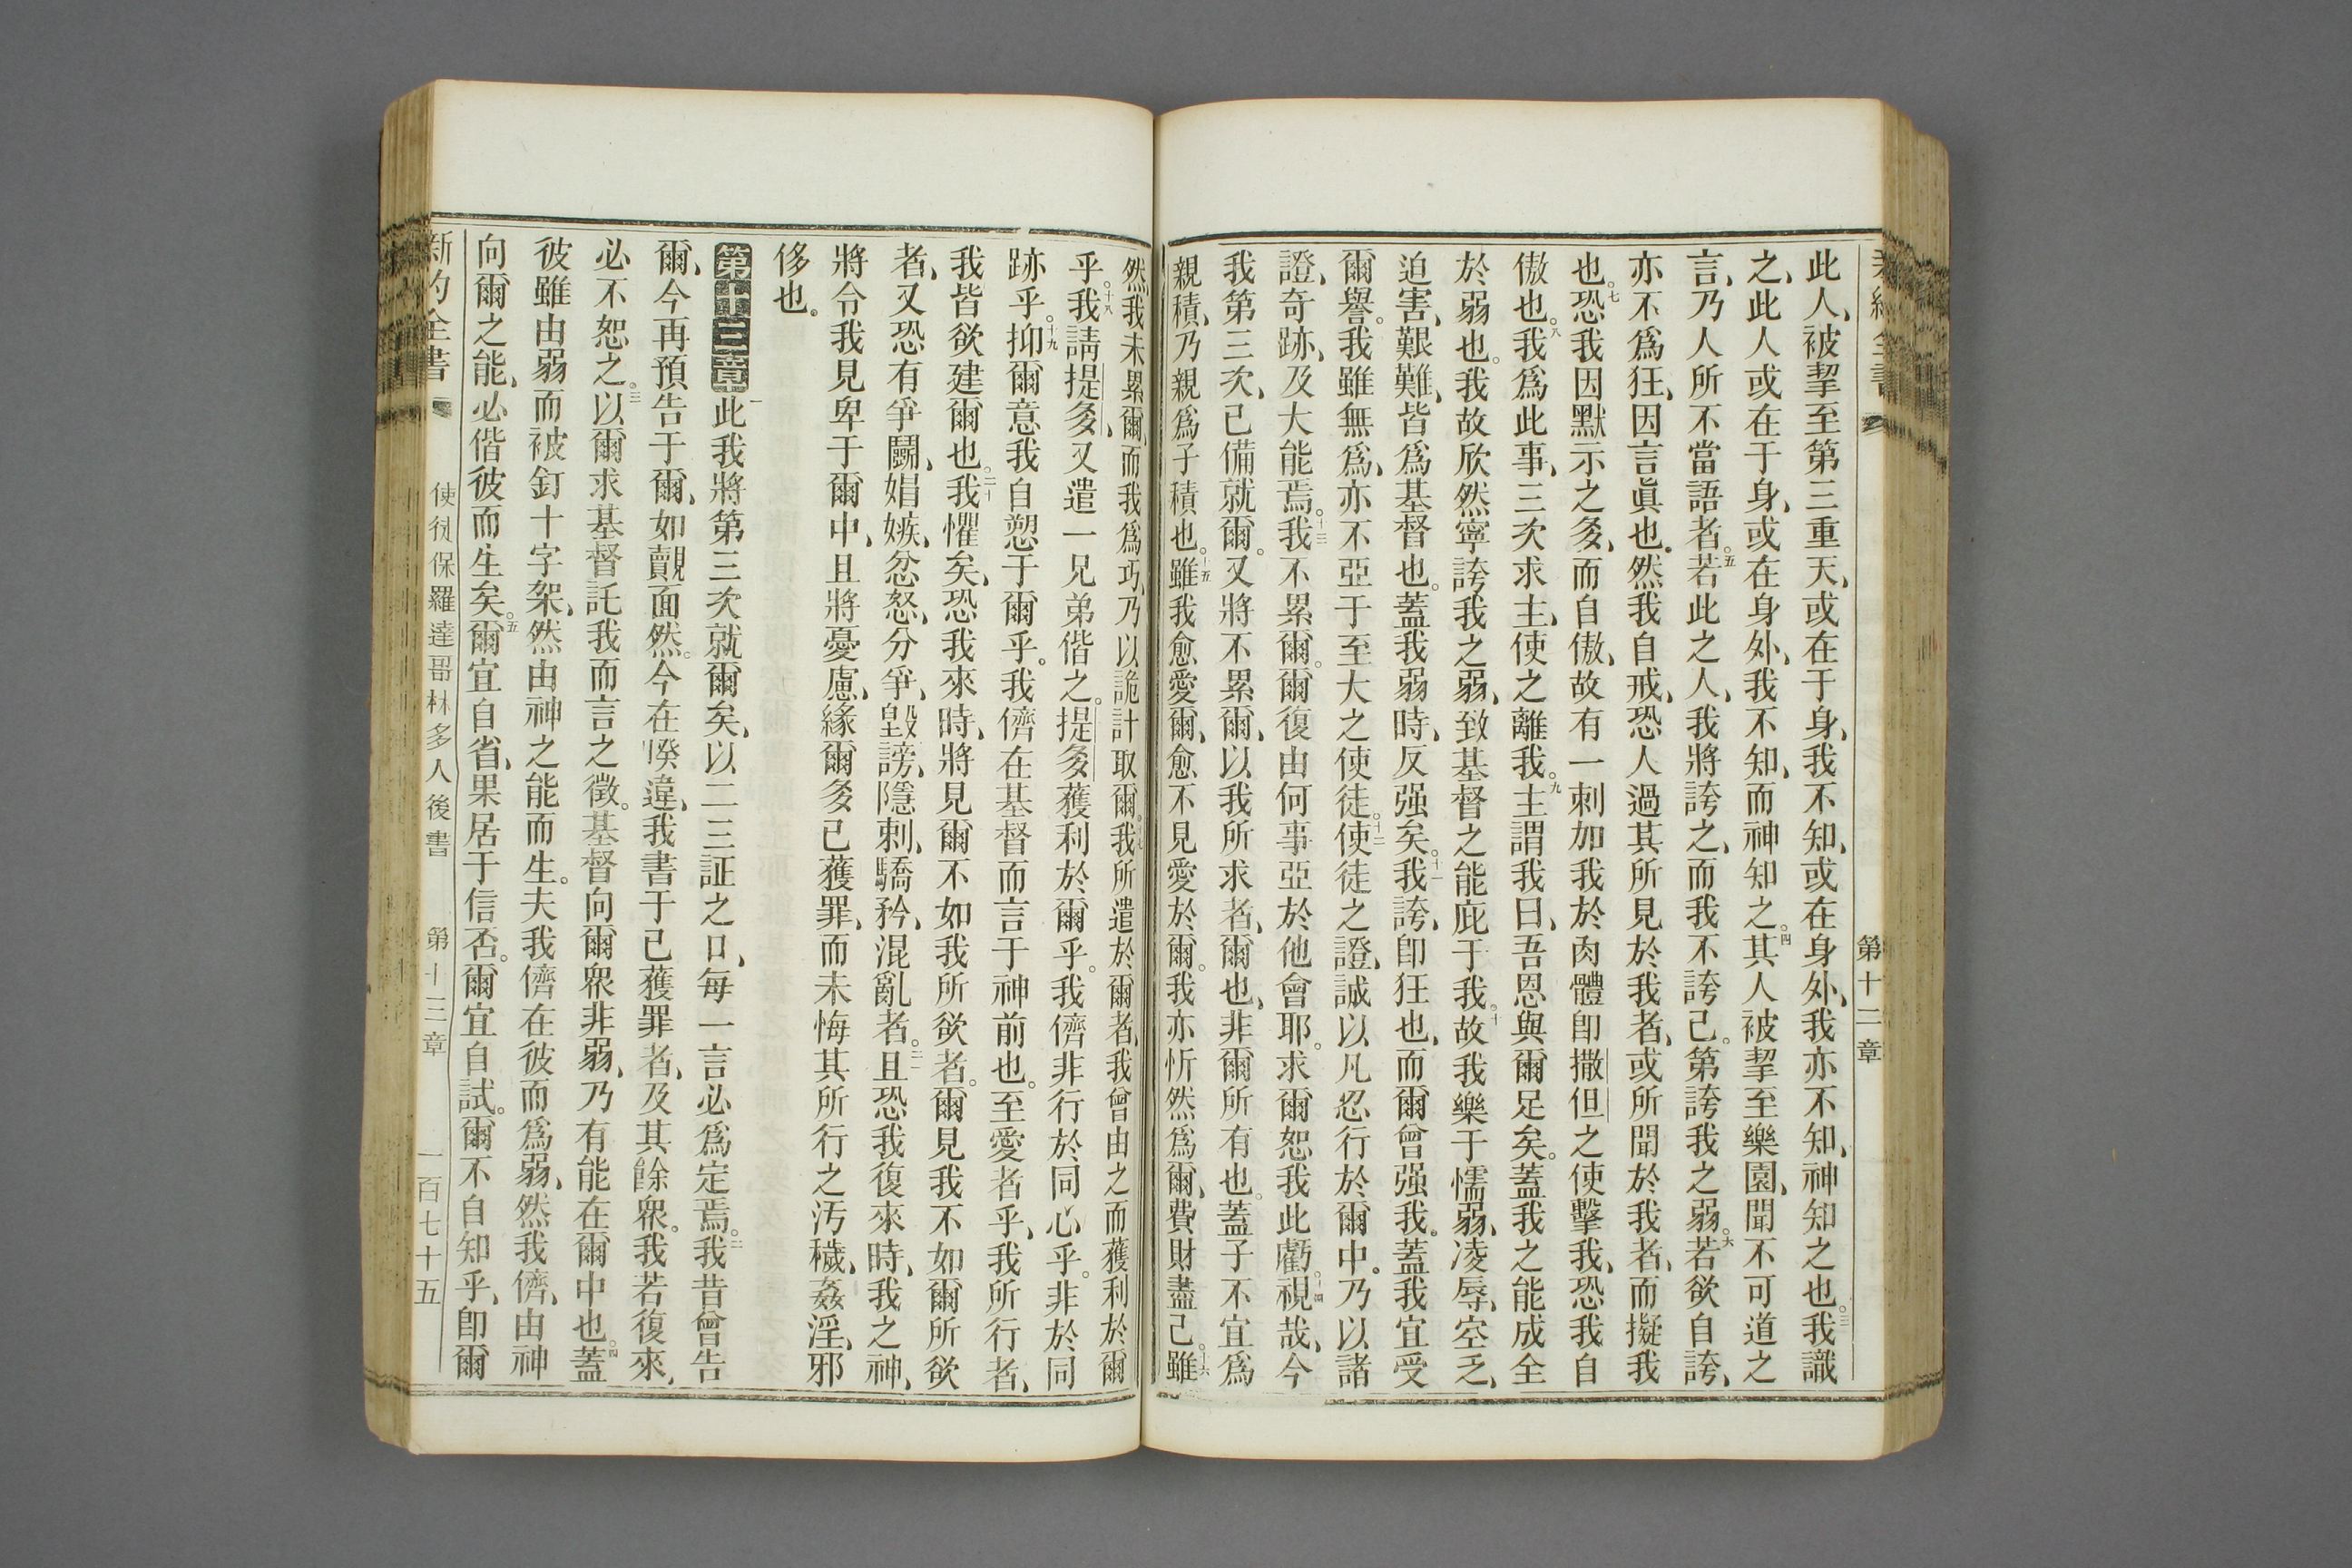 第十二章
此人、被挈至第三重天、或在于身、我不知、或在身外、我亦不知、神知之也。三我識
之、此人或在于身、或在身外、我不知、而神知之。四其人被挈至樂園、聞不可道之
言、乃人所不當語者。五若此之人、我將誇之、而我不誇己。第誇我之弱。六若欲自誇、
亦不爲狂、因言眞也。然我自戒、恐人過其所見於我者、或所聞於我者、而擬我
也。七恐我因默示之多、而自傲、故有一刺加我於肉體卽撒但之使擊我、恐我自
傲也。八我爲此事、三次求主、使之離我。九主謂我曰、吾恩與爾足矣。蓋我之能成全
於弱也。我故欣然寧誇我之弱、致基督之能庇于我。十故我樂于懦弱、凌辱、空乏、
迫害、艱難、皆爲基督也。蓋我弱時、反强矣。十一我誇、卽狂也、而爾曾强我。蓋我宜受
爾譽。我雖無爲、亦不亞于至大之使徒。十二使徒之證、誠以凡忍行於爾中。乃以諸
證、奇跡、及大能焉。十三我不累爾。爾復由何事亞於他會耶。求爾恕我此虧。十四視哉、今
我第三次、已備就爾。又將不累爾、以我所求者、爾也、非爾所有也。蓋子不宜爲
親積、乃親爲子積也。十五雖我愈愛爾、愈不見愛於爾。我亦忻然爲爾、費財盡己。十六雖
然我未累爾、而我爲巧、乃以詭計取爾。十七我所遣於爾者、我曾由之而獲利於爾
乎。十八我請提多、又遣一兄弟偕之。提多獲利於爾乎。我儕非行於同心乎。非於同
跡乎。十九抑爾意我自愬于爾乎。我儕在基督而言于神前也。至愛者乎、我所行者、
我皆欲建爾也。二十我懼矣、恐我來時、將見爾不如我所欲者。爾見我不如爾所欲
者、又恐有爭鬬、娼嫉、忿怒、分爭、毀謗、隱刺、驕矜、混亂者。二一且恐我復來時、我之神、
將令我見卑于爾中、且將憂慮、緣爾多已獲罪、而未悔其所行之汚穢、姦淫、邪
侈也。
第十三章一此我將第三次就爾矣、以二三証之口、每一言必爲定焉。二我昔曾告
爾、今再預告于爾、如覿面然。今在暌違、我書于已獲罪者、及其餘衆。我若復來、
必不恕之。三以爾求基督託我而言之徵。基督向爾衆非弱、乃有能在爾中也。四蓋
彼雖由弱而被釘十字架、然由神之能而生。夫我儕在彼而爲弱、然我儕、由神
向爾之能、必偕彼而生矣。五爾宜自省、果居于信否。爾宜自試。爾不自知乎、卽爾
新約全書 使徒保羅達哥林多人後書 第十三章 一百七十五